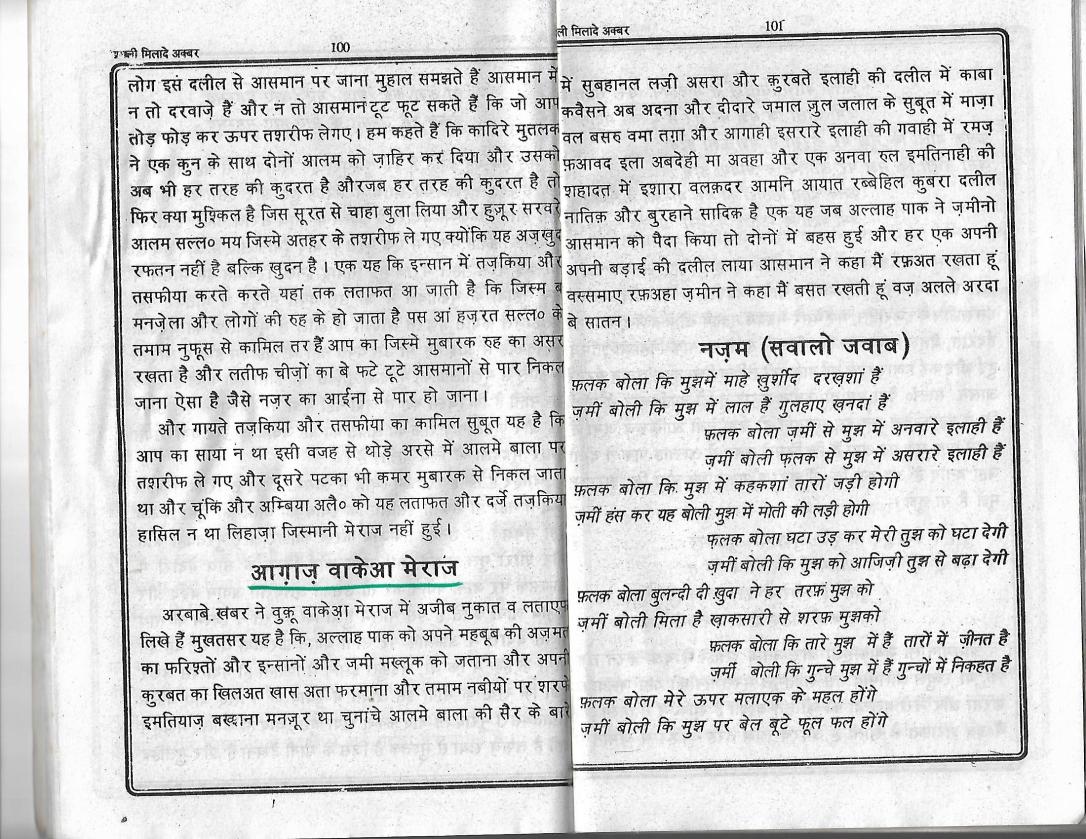 ली मिलादे अक्बर 100
लोग इस दलील से आसमान पर जाना मुहाल समझते हैं आसमान में
न तो दरवाजे हैं और न तो आसमान टूट फूट सकते हैं कि जो आप
तोड़ फोड़ कर ऊपर तशरीफ लेगए। हम कहते हैं कि कादिरे मुतलक
ने एक कुन के साथ दोनों आलम को ज़ाहिर कर दिया और उसको
अब भी हर तरह की कुदरत है औरजब हर तरह की कुदरत है तो
फिर क्या मुश्किल है जिस सूरत से चाहा बुला लिया और हुज़ूर सरवरे
आलम सल्ल० मय जिस्मे अतहर के तशरीफ ले गए क्योंकि यह अज़खुद
रफतन नहीं है बल्कि खुदन है। एक यह कि इन्सान में तज़किया और
तसफीया करते करते यहां तक लताफत आ जाती है कि जिस्म ब
मनज़ेला और लोगों की रुह के हो जाता है पस आं हज़रत सल्ल० के
तमाम नुफूस से कामिल तर हैं आप का जिस्मे मुबारक रुह का असर
रखता है और लतीफ चीज़ों का बे फटे टूटे आसमानों से पार निकल
जाना ऐसा है जैसे नज़र का आईना से पार हो जाना।
और गायते तज़किया और तसफीया का कामिल सुबूत यह है कि
आप का साया न था इसी वजह से थोड़े अरसे में आलमे बाला पर
तशरीफ ले गए और दूसरे पटका भी कमर मुबारक से निकल जाता
था और चूंकि और अम्बिया अलै० को यह लताफत और दर्जे तज़किया
हासिल न था लिहाज़ा जिस्मानी मेराज नहीं हुई।
आग़ाज़ वाकेआ मेराज
अरबाबे खबर ने वुकू वाकेआ मेराज में अजीब नुकात व लताएफ
लिखे हैं मुखतसर यह है कि, अल्लाह पाक को अपने महबूब की अज़मत
का फरिश्तों और इन्सानों और जमी मख्लूक को जताना और अपनी
कुरबत का खिलअत खास अता फरमाना और तमाम नबीयों पर शरफे
इमतियाज़ बख्शना मनज़ूर था चुनांचे आलमे बाला की सैर के बारे
ली मिलादे अक्बर 101
में सुबहानल लज़ी असरा और क़ुरबते इलाही की दलील में काबा
कवैसने अब अदना और दीदारे जमाल ज़ुल जलाल के सुबूत में माज़ा
वल बसरु वमा तग़ा और आगाही इसरारे इलाही की गवाही में रमज़
फ़आवद इला अबदेही मा अवहा और एक अनवा रुल इमतिनाही की
शहादत में इशारा वलक़दर आमनि आयात रब्बेहिल कुबरा दलील
नातिक़ और बुरहाने सादिक़ है एक यह जब अल्लाह पाक ने ज़मीनो
आसमान को पैदा किया तो दोनों में बहस हुई और हर एक अपनी
अपनी बड़ाई की दलील लाया आसमान ने कहा मैं रफ़अत रखता हूं
वस्समाए रफ़अहा ज़मीन ने कहा मैं बसत रखती हूं वज़ अलले अरदा
बे सातन।
नज़्म (सवालो जवाब)
फ़लक बोला कि मुझमें माहे खुर्शीद दरखशां हैं
ज़मीं बोली कि मुझ में लाल हैं गुलहाए खनदां हैं
फ़लक बोला ज़मीं से मुझ में अनवारे इलाही हैं
ज़मीं बोली फ़लक से मुझ में असरारे इलाही हैं
फ़लक बोला कि मुझ में कहकशां तारों जड़ी होगी
ज़मीं हंस कर यह बोली मुझ में मोती की लड़ी होगी
फ़लक बोला घटा उड़ कर मेरी तुझ को घटा देगी
ज़मीं बोली कि मुझ को आजिज़ी तुझ से बढ़ा देगी
फ़लक बोला बुलन्दी दी खुदा ने हर तरफ़ मुझ को
ज़मीं बोली मिला है ख़ाकसारी से शरफ़ मुझको
फ़लक बोला कि तारे मुझ में हैं तारों में ज़ीनत है
ज़मीं बोली कि गुन्चे मुझ में हैं गुन्चों में निकहत है
फ़लक बोला मेरे ऊपर मलाएक के महल होंगे
ज़मीं बोली कि मुझ पर बेल बूटे फूल फल होंगे